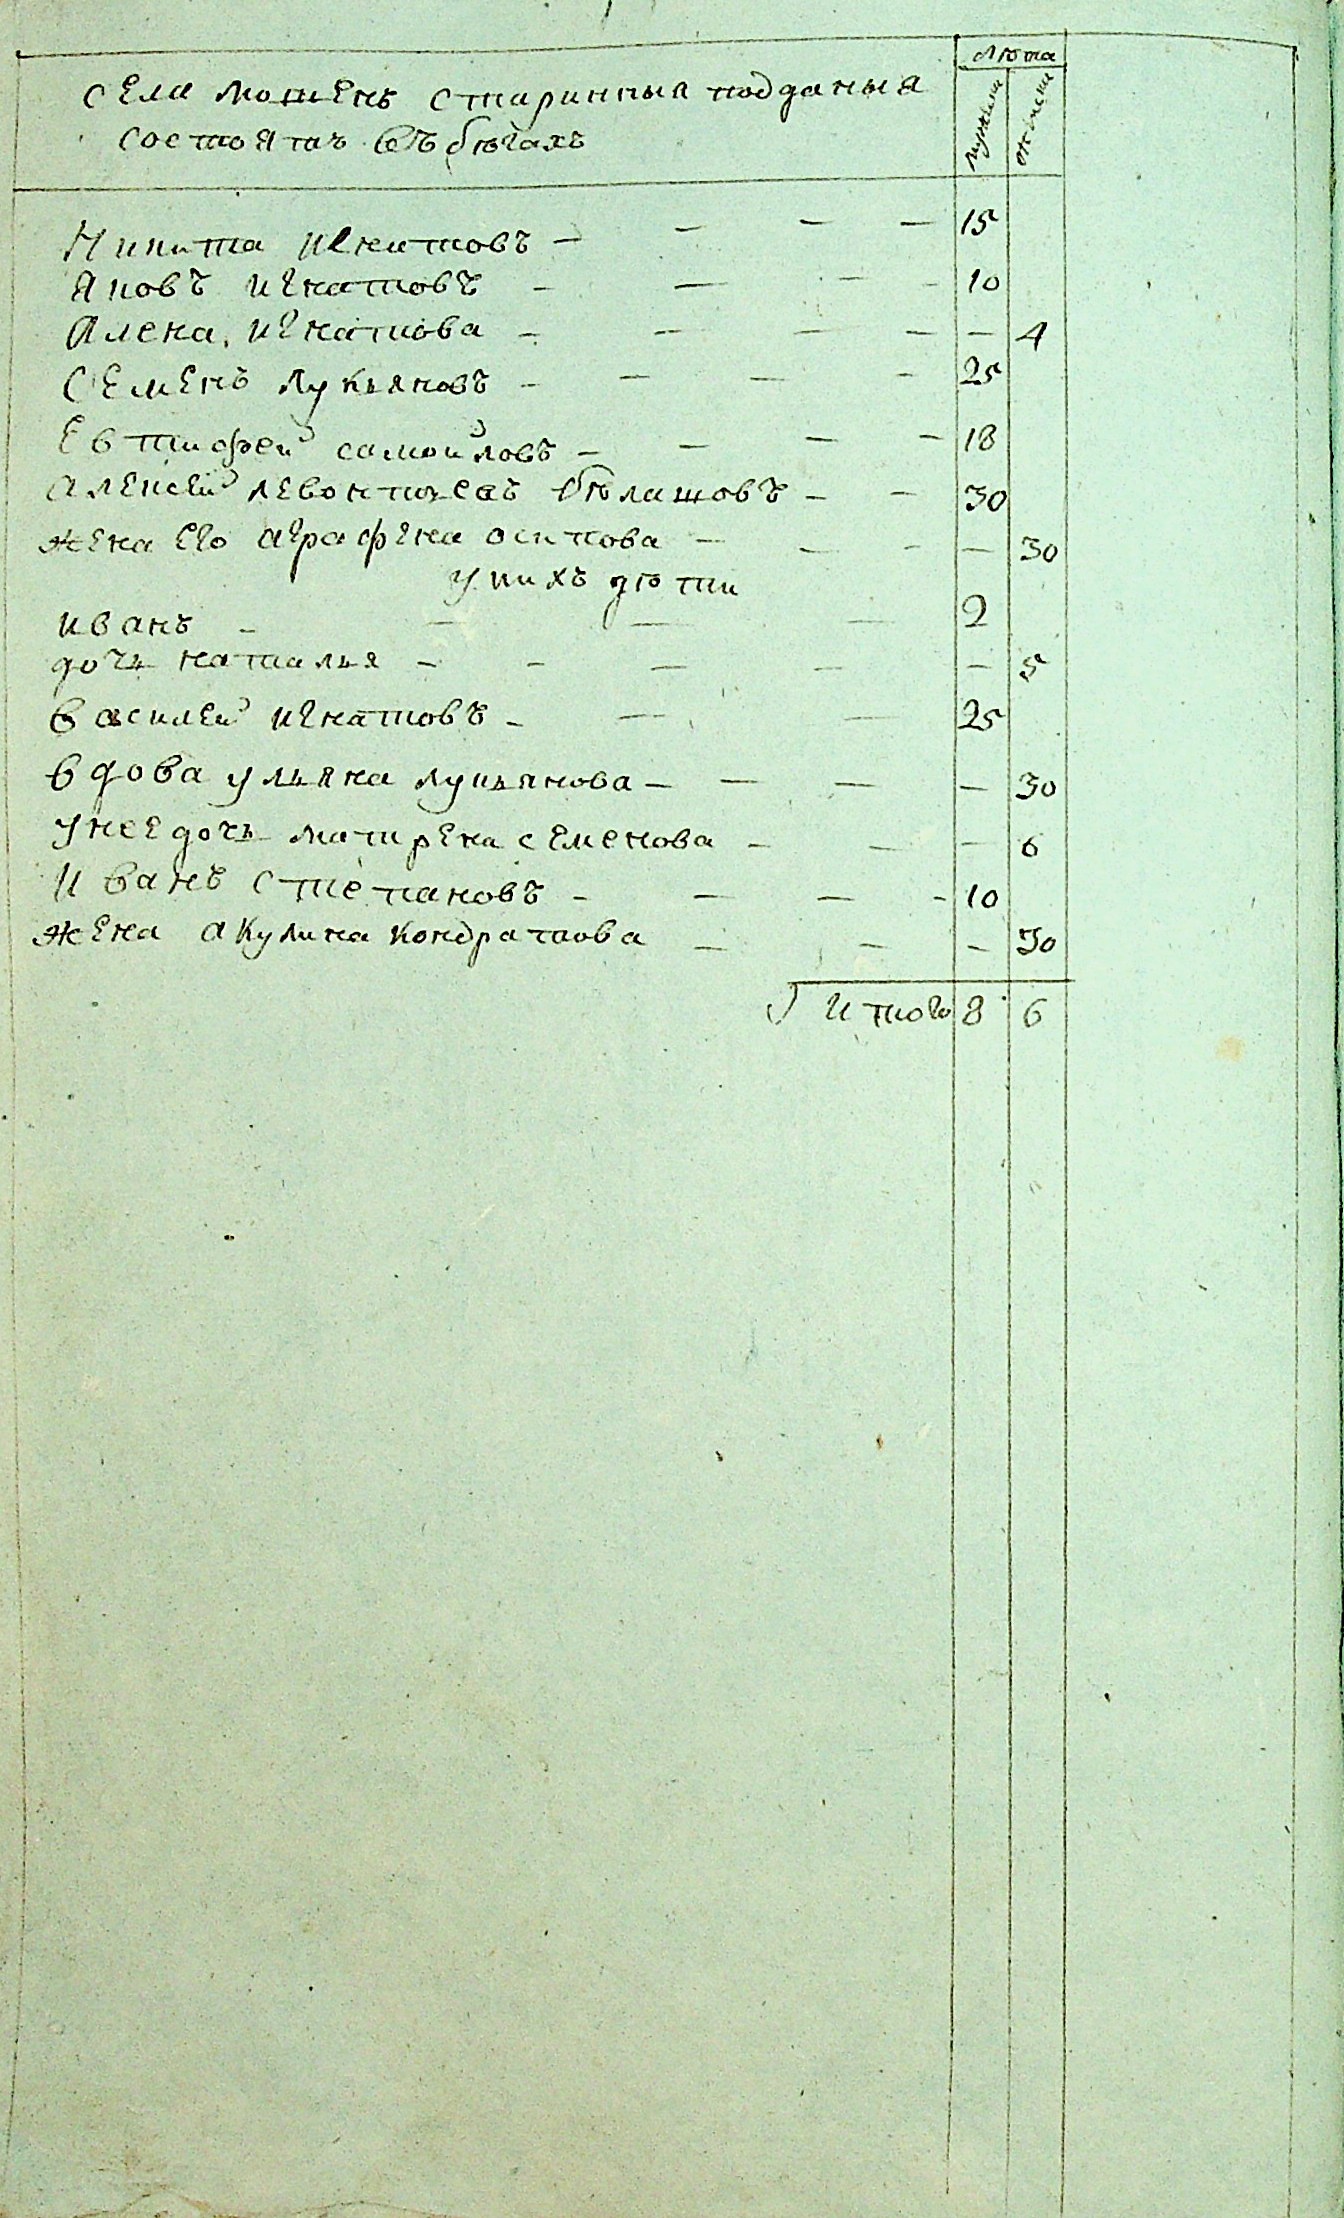 лѣта
мужска женски
села мошень старинныя подданыя
состоятъ въ бѣгахъ
Никита игнатовъ — — — — 15
Яковъ игнатовъ — — — — 10
Алена игнатова — — — — — 4
Семенъ лукьяновъ — — — — 25
Евтифей самойловъ — — — — 18
алексей левонтьевъ бѣлашовъ — — 30
жена его аграфена осипова — — — — 30
у нихъ дѣти
иванъ — — — — 2
дочь наталья — — — — — 5
василей игнатовъ — — — 25
вдова ульяна лукьянова — — — — 30
у нее дочь матрена семенова — — — 6
Иванъ степановъ — — — — 10
жена акулина кондратова — — — 30
Итого 8 6